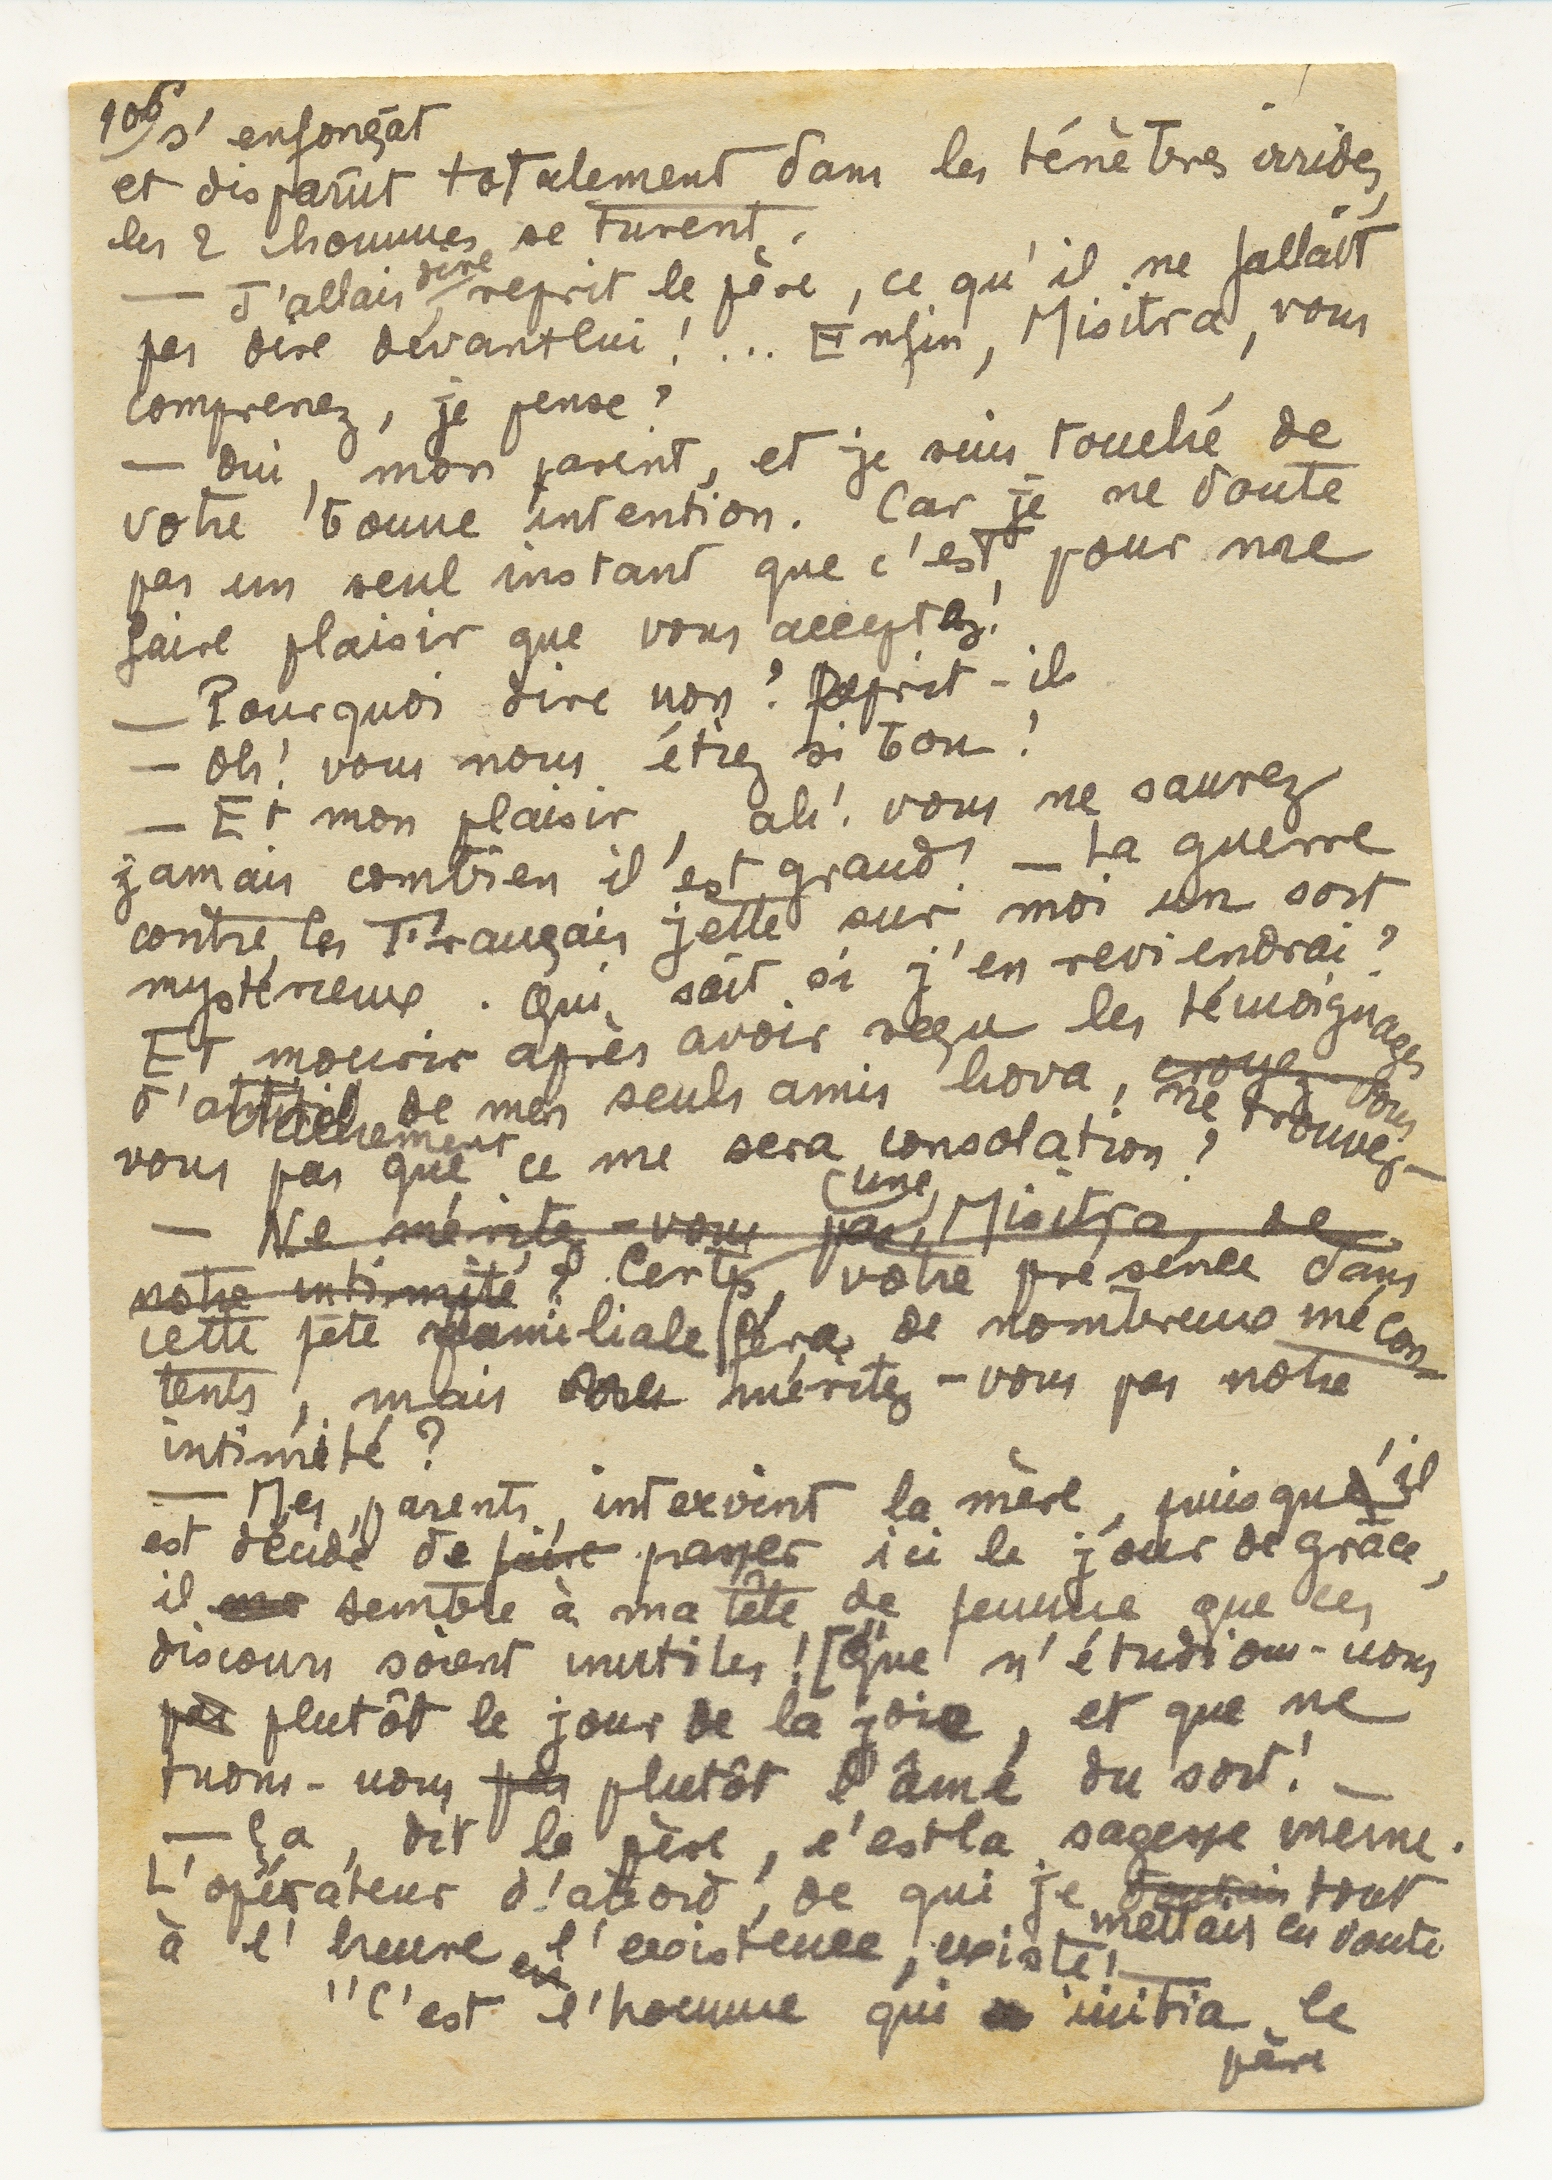 106/ s'enfonçât
et disparût totalement dans les ténèbres irisées,
les 2 hommes se turent.
— J'allais dire, reprit le père, ce qu'il ne fallait
pas dire devant lui ! ... Enfin, Misitra, vous
comprenez, je pense ?
— Oui, mon parent, et je suis touché de
votre bonne intention. Car je ne doute
pas un seul instant que c'est pour me
faire plaisir que vous acceptez !
— Pourquoi dire non ? Reprit-il
— Oh ! vous nous êtrez si bon !
— Et mon plaisir, ah ! vous ne saurez
jamais combien il est grand ! — La guerre
contre les Français jette sur moi un sort
mystérieux. Qui sait si j'en reviendrai ?
Et mourir après avoir reçu les témoignages
d'attachement de mes seuls amis hova, croyez-vous ne trouvez-
vous pas que ce me sera une consolation ?
— Ne mérite-vous pas, Misitra, de
notre intimité ? Certes, votre présence dans
cette fête familiale fera de nombreux mécon-
tents, mais ne méritez-vous pas notre
intimité ?
— Mes parents, intervint la mère, puisqu'il
est décidé de faire passer ici le jour de grâce,
il me semble à ma tête de femme que ces
discours soient inutiles ! [Que n'étudions-nous
pas plutôt le jour de la joie, et que ne
tuons-nous pas plutôt l'âme du sort ! —
— Ça, dit le père, c'est la sagesse même.
L'opérateur d'abord, de qui je doutais tout
à l'heure mettais en doute l'existence, existe ! —
"C'est l'homme qui initia le
père